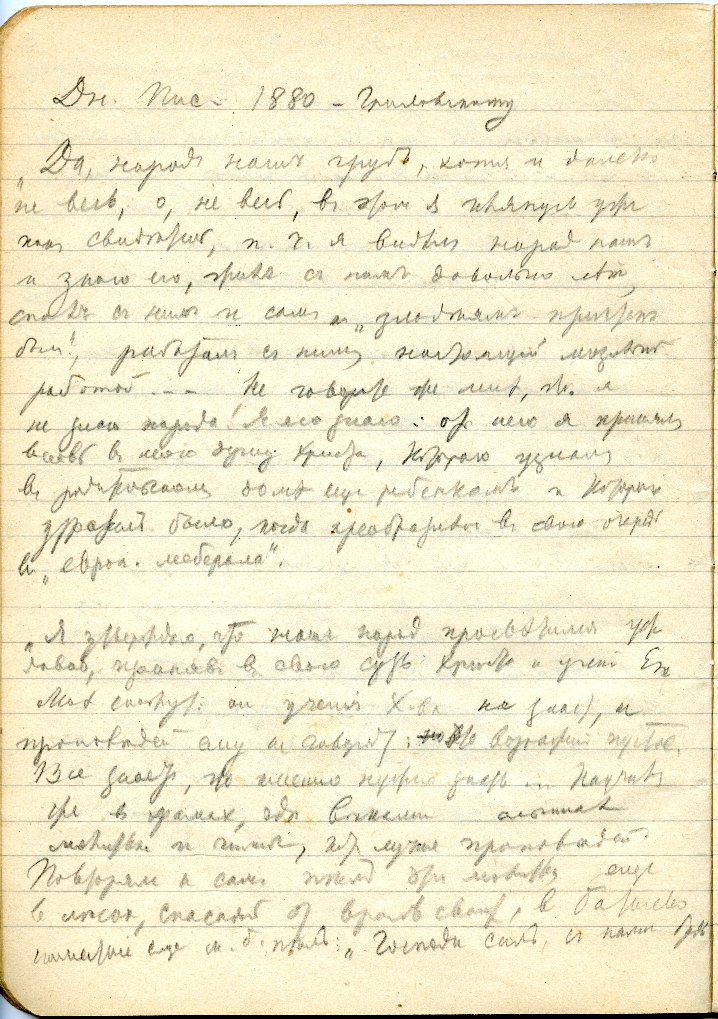 Дн. Пис. 1880 –
„Да, народъ нашъ грубъ, хотя и далеко
не весь, о, не весь, въ этом я клянусь уже
какъ свидѣтель, п. ч. я видѣлъ народ нашъ
и знаю его, жилъ съ нимъ довольно лѣтъ,
спалъ съ нимъ и самъ къ „злодѣямъ причтенъ
былъ", работалъ съ нимъ настоящей мозольной
работой . – – Не говорите же мнѣ, что я
не знаю народа! Я его знаю: отъ него я принялъ
вновь въ мою душу Христа, Котораго узналъ
въ родительском домѣ еще ребенкомъ и Котораго
утратилъ было, когда преобразился въ свою очередь
въ „европ. либерала".
„Я утверждаю, что нашъ народ просвѣтился уже
давно, принявъ въ свою суть Христа и учен. Его
Мнѣ скажутъ: он ученія Х-ва не знает, и
проповѣдей ему не говорятъ: но это возражен. пустое.
Все знаетъ, что именно нужно знать ... Научился
же в храмах, гдѣ вѣками слышалъ
молитвы и гимны, кот. лучше проповѣдей.
Повторялъ и самъ пѣлъ эти молитвы еще
в лѣсах, спасаясь от враговъ своих, в Батыево
нашествіе еще м. б. пѣлъ: „Господи силъ, съ нами буди